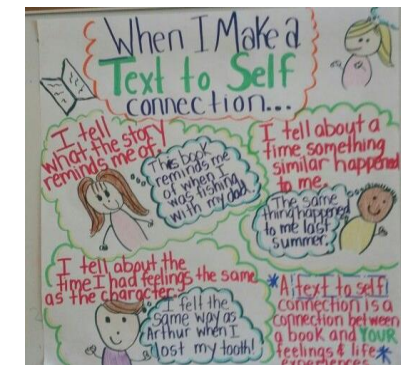 When I Make a
Text to Self
connection...
I tell
what the story
reminds me of.
This book
reminds me
of when I
was fishing
with my dad.
I tell about a
time something
similar happened
to me.
The same
thing happened
to me last
summer.
I tell about the
time I had feelings the same
as the character.
I felt the
same way as
Arthur when I
lost my tooth!
*A text to self
connection is a
connection between
a book and YOUR
feelings & life*
experiences